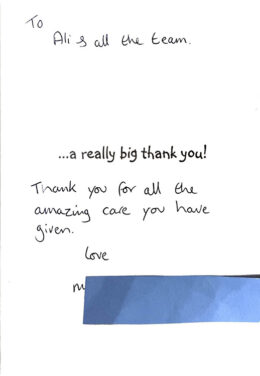 To
Ali & all the team.
...a really big thank you!
Thank you for all the
amazing care you have
given.
love